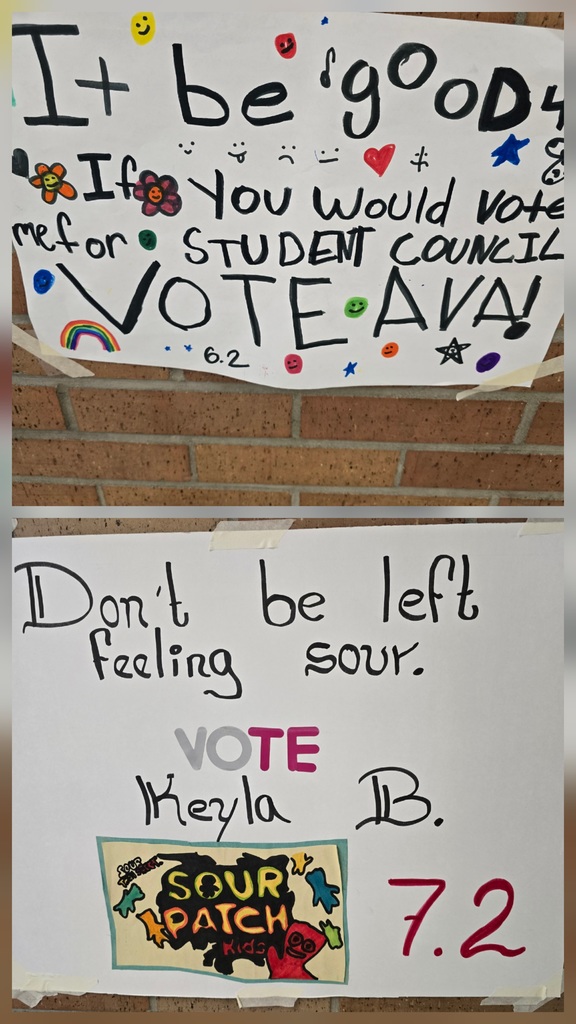 It be good 4
If you would vote
me for STUDENT COUNCIL
VOTE AVA!
6.2
Don't be left
feeling sour.
VOTE
Keyla B.
SOUR
PATCH
Kids
7.2